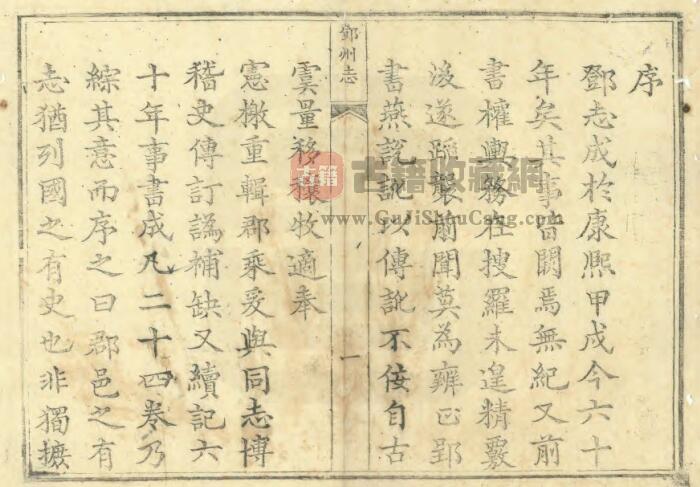 序
鄧志成於康熙甲戌今六十
年矣其事皆闕焉無紀又前
書權輿務在搜羅未遑精覈
後遂踵襲前聞莫為辨正郢
書燕說訛以傳訛不佞自古
鄧州志
一
虞量移穰牧適奉
憲檄重輯郡乘爰與同志博
稽史傳訂譌補缺又續記六
十年事書成凡二十四卷乃
綜其意而序之曰郡邑之有
志猶列國之有史也非獨摭
古籍
古籍收藏網
www.GuJiShouCang.com